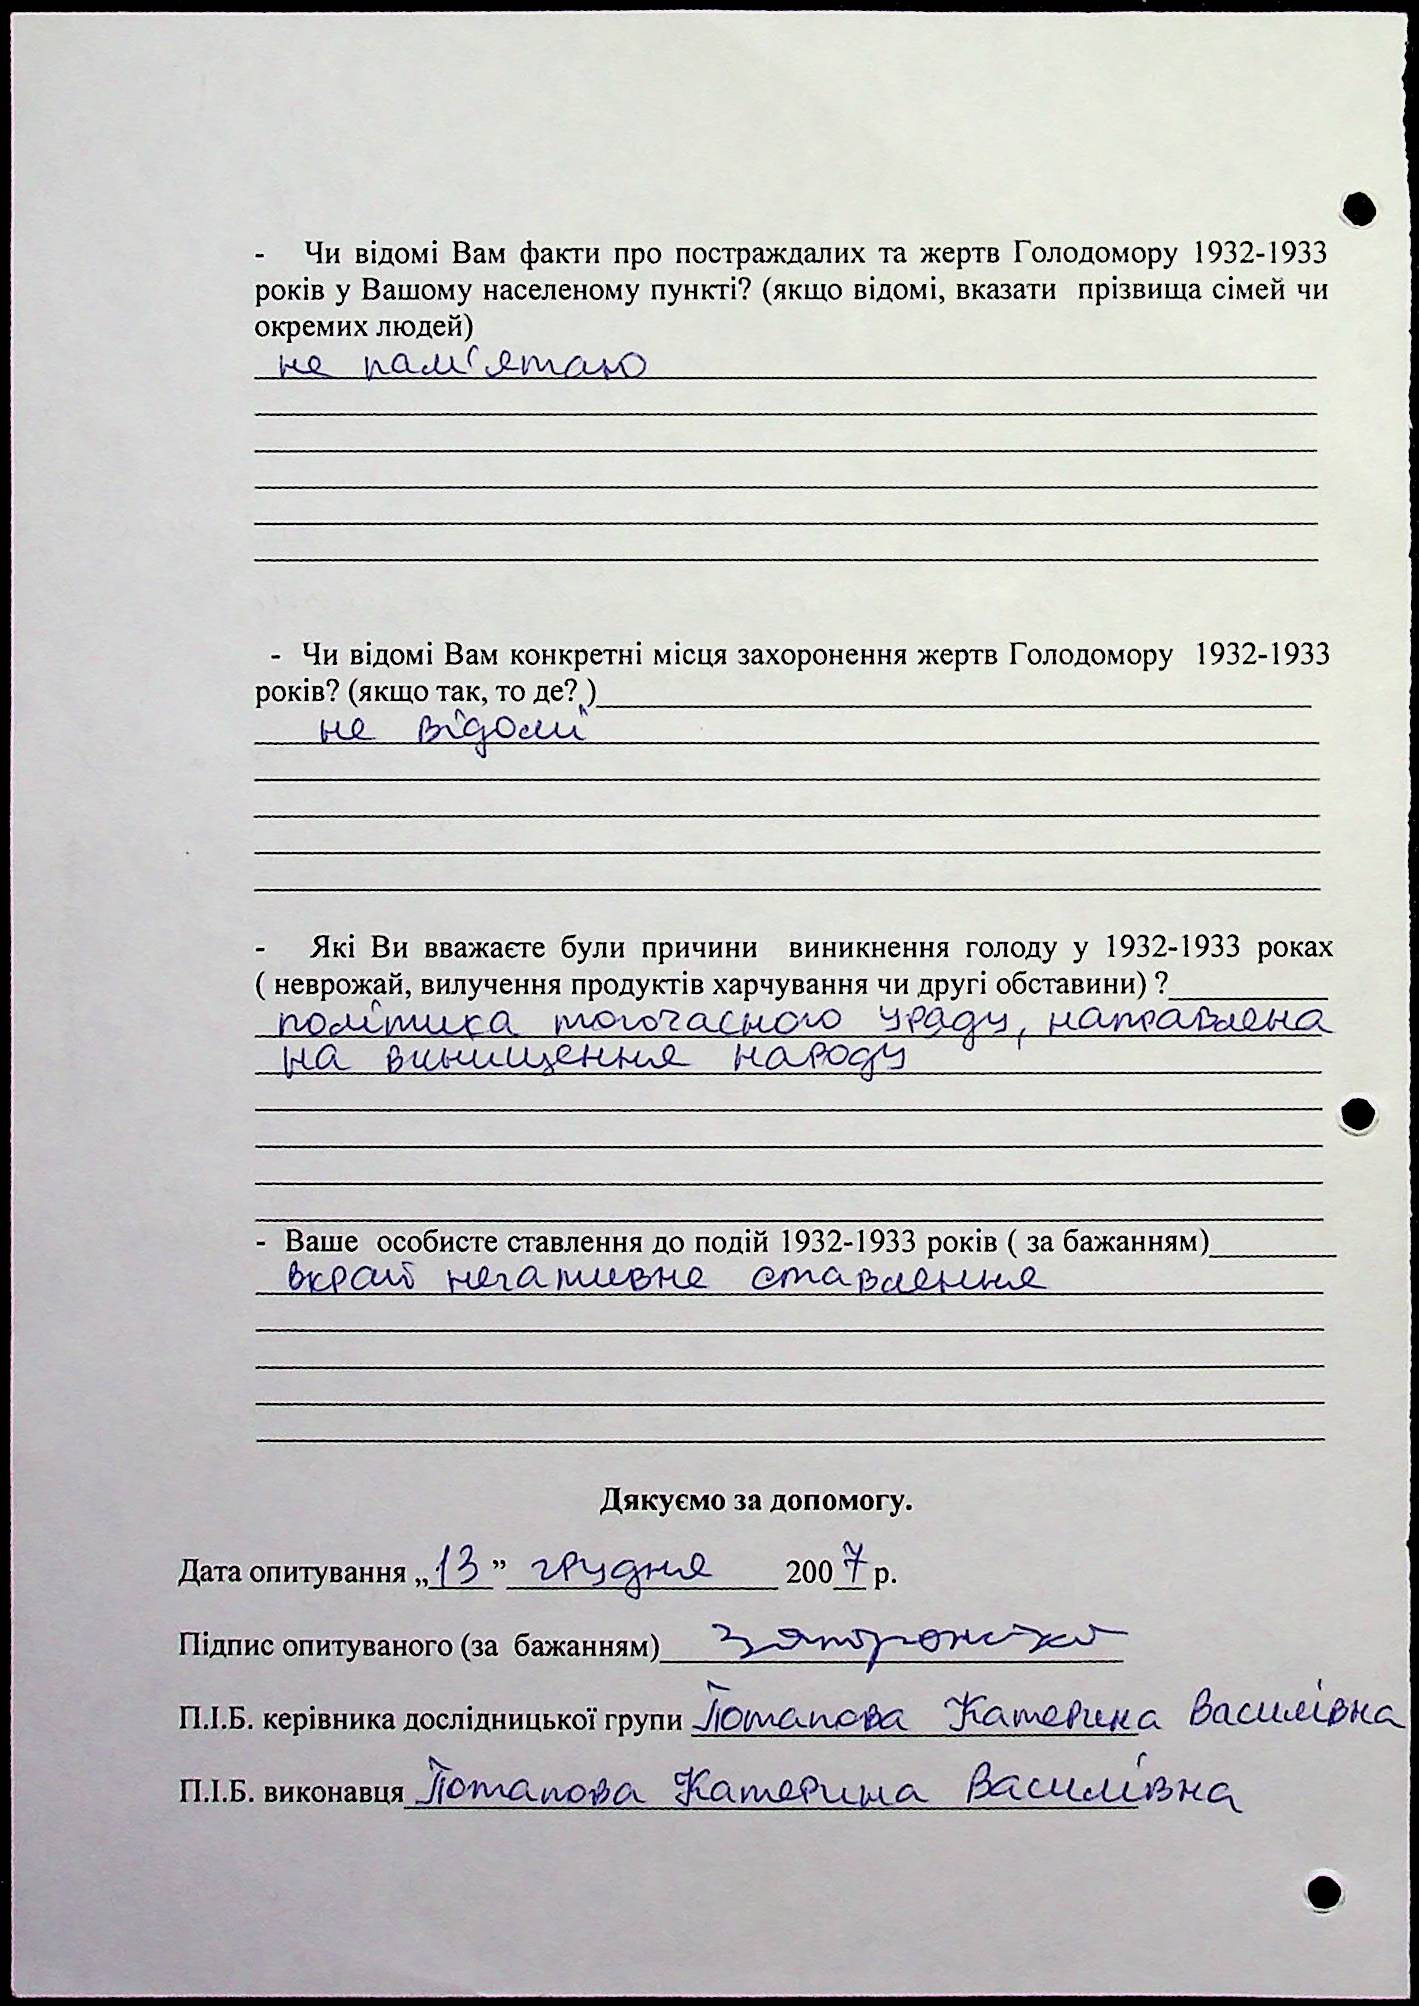 - Чи відомі Вам факти про постраждалих та жертв Голодомору 1932-1933
років у Вашому населеному пункті? (якщо відомі, вказати прізвища сімей чи
окремих людей)
не пам'ятаю
- Чи відомі Вам конкретні місця захоронення жертв Голодомору 1932-1933
років? (якщо так, то де? )
не відомі
- Які Ви вважаєте були причини виникнення голоду у 1932-1933 роках
( неврожай, вилучення продуктів харчування чи другі обставини) ?
політика тогочасного уряду, направлена
на винищення народу
- Ваше особисте ставлення до подій 1932-1933 років ( за бажанням)
вкрай негативне ставлення
Дякуємо за допомогу.
Дата опитування „13” грудня 2007 р.
Підпис опитуваного (за бажанням)
П.І.Б. керівника дослідницької групи Потапова Катерина Василівна
П.І.Б. виконавця Потапова Катерина Василівна